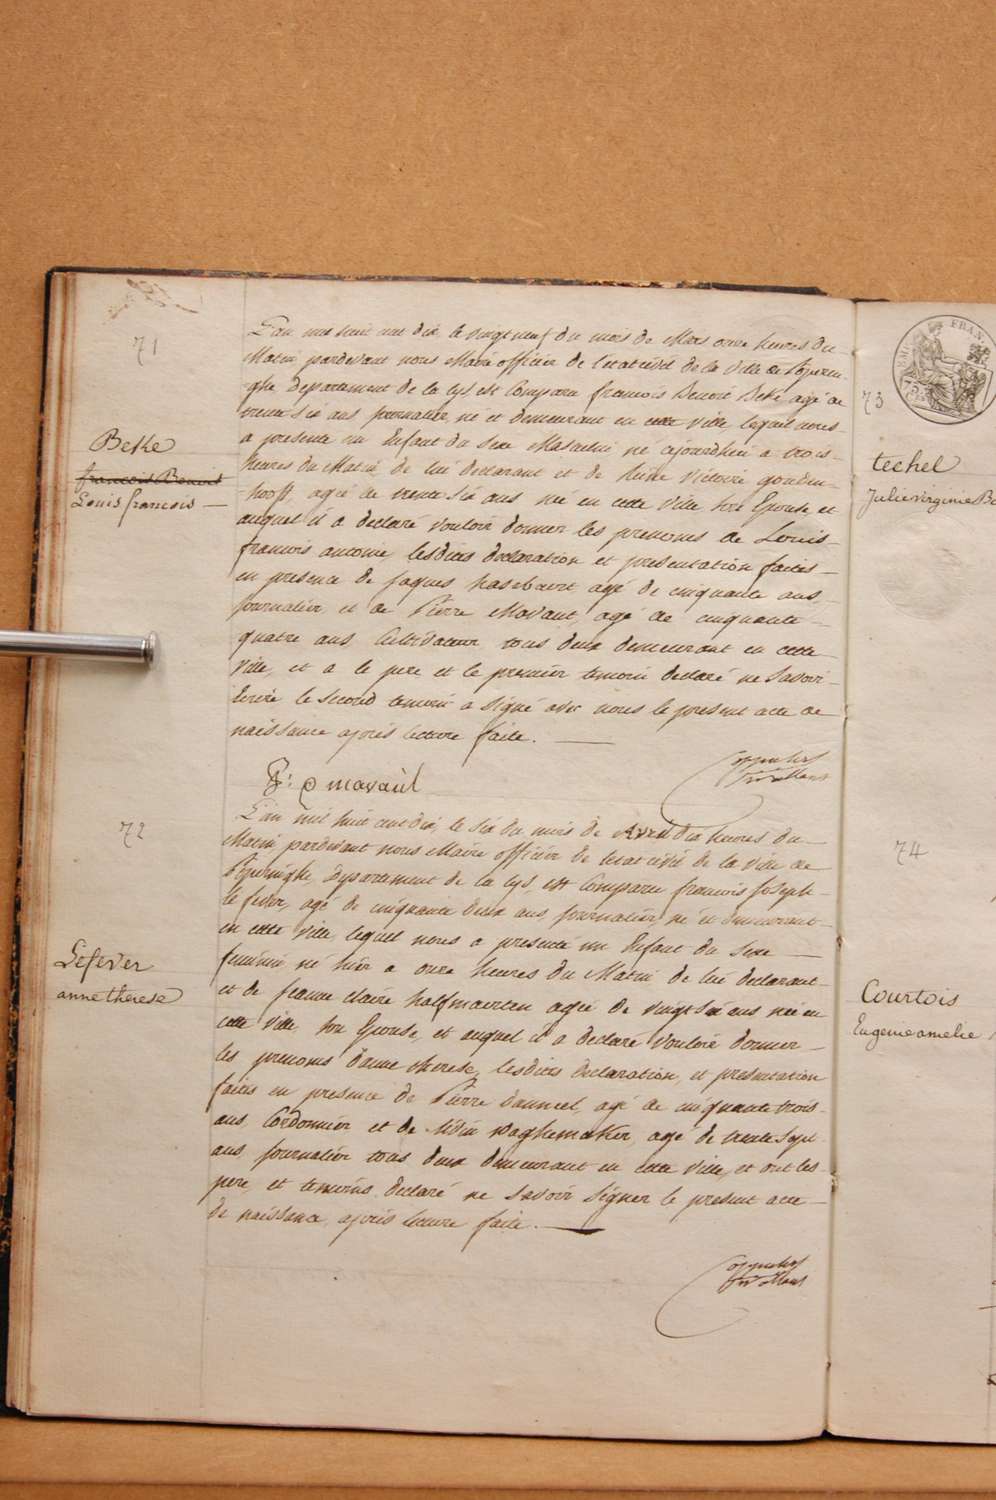 71
Beke
francois Benoit
Louis francois —
L'an mil huit cent dix, le vingt neuf du mois de Mars onze heures du
Matin pardevant nous Maire officier de l'etat civil de la ville de Poperin-
ghe, departement de la Lys, est Comparu francois Benoit Beke, agé de
trente six ans Journalier, né et demeurant en cette ville lequel nous
a presenté un Enfant du sexe Masculin né ajourdhui a trois
heures du Matin de lui declarant et de Victoire
hooft, agée de trente six ans née en cette ville son Epouse et
auquel il a declaré vouloir donner les prenoms de Louis
francois antoine, lesdites declaration et presentation faites
en presence de Jaques hasebaert agé de cinquante ans,
journalier, et de Pierre Mavaut, agé de cinquante
quatre ans Cultivateur tous deux demeurant en cette
ville, et a le pere et le premier temoin declaré ne savoir
Ecrire le second temoin a signé avec nous le present acte de
naissance après lecture faite. —
72
Lefever
anne therese
L'an mil huit cent dix, le six du mois de Avril dix heures du
Matin pardevant nous Maire officier de l'etat civil de la ville de
Poperinghe, departement de la Lys, est Comparu francois Joseph
lefever, agé de cinquante deux ans, journalier né et demeurant
en cette ville, lequel nous a presenté un Enfant du sexe —
feminin né hier a onze heures du Matin de lui declarant
et de jeanne claire halfmaerten agée de vingt six ans née en
cette ville son Epouse, et auquel il a declaré vouloir donner
les prenoms d'anne therese, lesdites declaration, et presentation
faites en presence de Pierre danneel, agé de cinquante trois
ans, Cordonnier et de waghemaker, agé de trente sept
ans, journalier tous deux demeurant en cette ville, et ont les
pere, et temoins declaré ne savoir signer le present acte
de naissance, après lecture faite. —
73
techel
Julie virginie
74
Courtois
Eugenie amelie